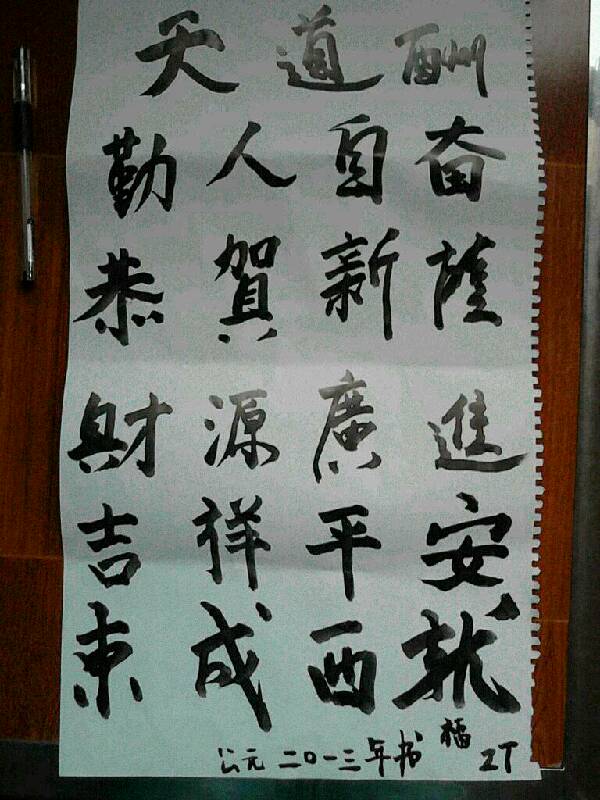 天道酬
勤人自奋
恭賀新蕯
財源廣進
吉祥平安
東成西就
福
公元二〇一三年书 ZT